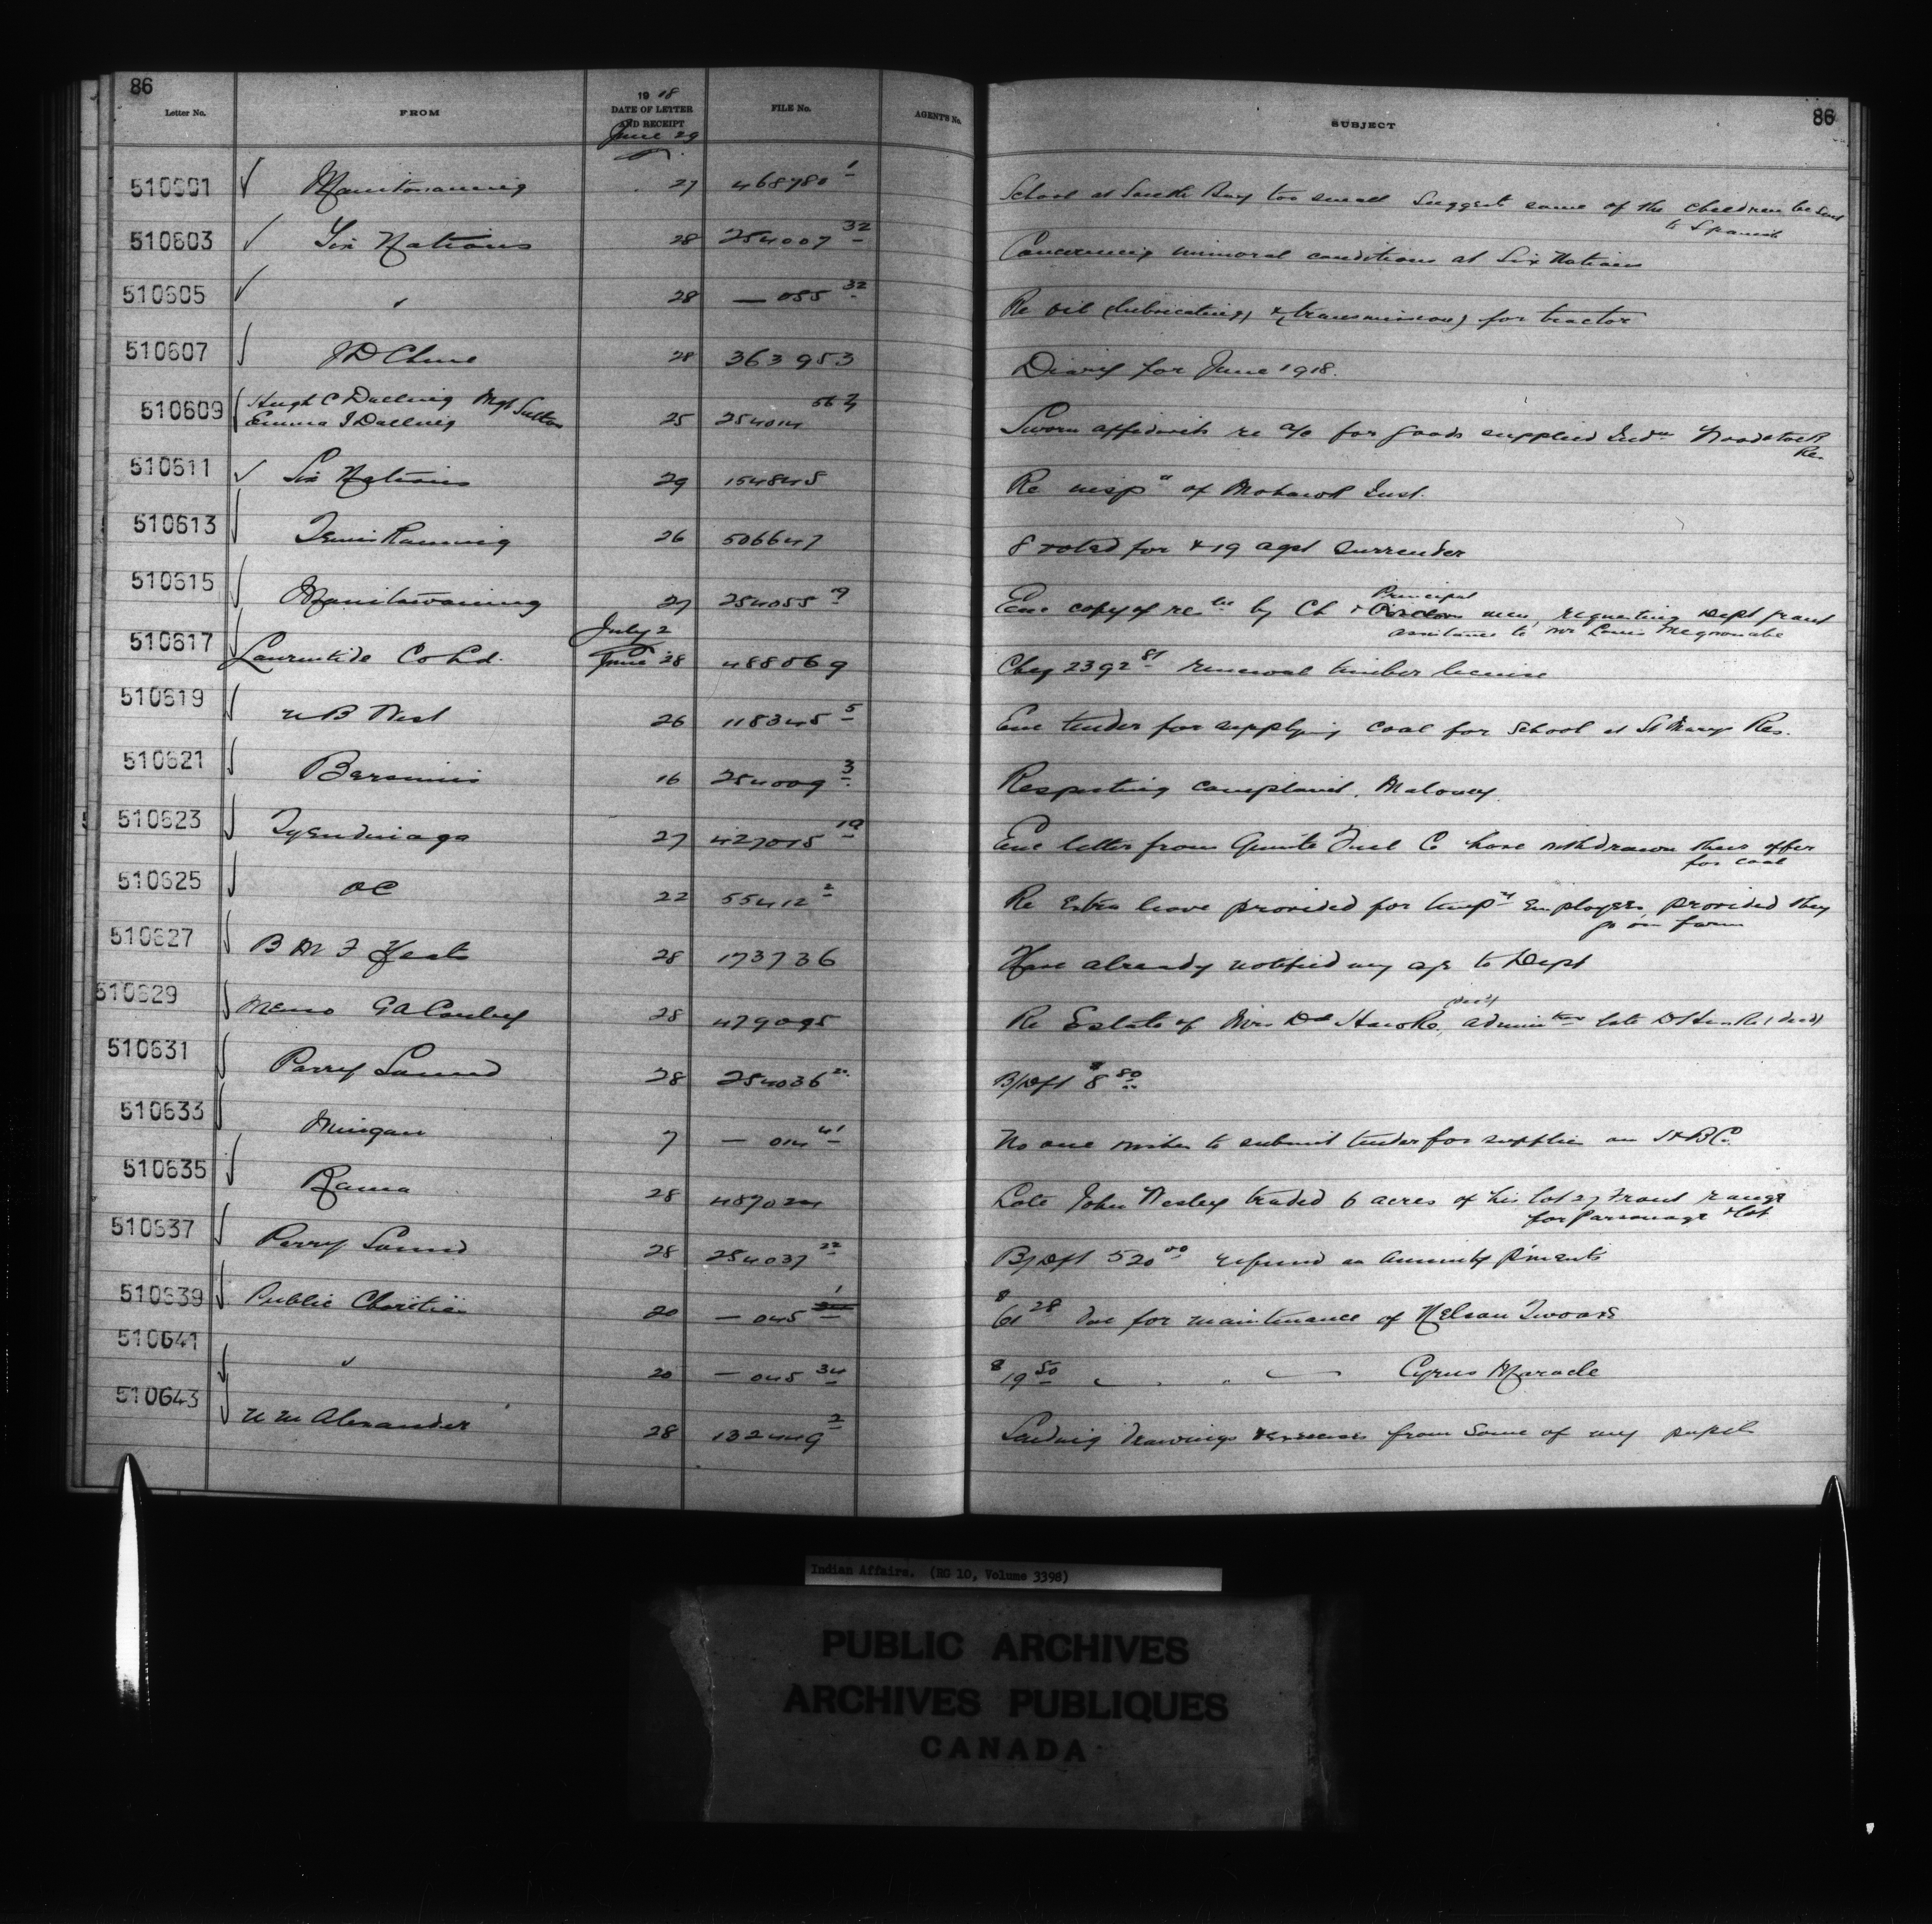 86
Letter No. FROM 1918 DATE OF LETTER AND RECEIPT FILE No. AGENT'S No. SUBJECT 86
June 29
510601 Manitowaning 27 468780 1 School at South Bay too small Suggests some of the children be sent
to Spanish
510603 Six Nations 28 254007 32 Concerning immoral conditions at Six Nations
510605 " 28 — 055 32 Re oil (lubricating) & (transmission) for tractor
510607 28 363953 Diary for June 1918.
510609 Hugh C Dalling Mgt Sutton
Emma J Dalling 25 254014 Sworn affidavits re a/c for goods supplied Indn Woodstock
Re.
510611 Six Nations 29 154845 Re inspn of Mohawk Inst.
510613 Temiskaming 26 506647 8 voted for & 19 agst surrender
510615 Manitowaning 27 254055 9 Enc copy of by Ch & Principal men, requesting Dept grant
assistance to Mr Louis
July 2
510617 Laurentide Co Ltd. June 28 488069 Cheq 2392 81 renewal timber license
510619 N B West 26 118345 5 Enc tender for supplying coal for school at St Marys Res.
510621 Bersimis 16 254009 3 Respecting complaint, Maloney
510623 Tyendinaga 27 427015 19 Enc letter from Quinte Fuel Co have withdrawn their offer
for coal
510625 OC 22 55412 2 Re Extra leave provided for tempy Employees provided they
go on farm
510627 B M F 28 173736 Have already notified my to Dept
510629 Memo G A Conley 28 479095 Re Estate of Mrs Dd Hawke, (decd) late D Hawke (decd)
510631 Parry Sound 28 254036 B/Dft $8 80
510633 Mingan 7 — 014 41 No one wishes to submit tender for supplies on
510635 Rama 28 Late John Wesley traded 6 acres of his lot 27 Front range
for Parsonage lot
510637 Parry Sound 28 254037 22 B/Dft 520 00 refund on annuity p'ments
510639 Public Charities 20 — 045 1 $61 28 due for maintenance of Nelson
510641 " 20 — 045 34 $19 50 " " " Cyrus Maracle
510643 Alexander 28 132449 2 Sending drawings from some of my pupils
Indian Affairs. (RG 10, Volume 3398)
PUBLIC ARCHIVES
ARCHIVES PUBLIQUES
CANADA